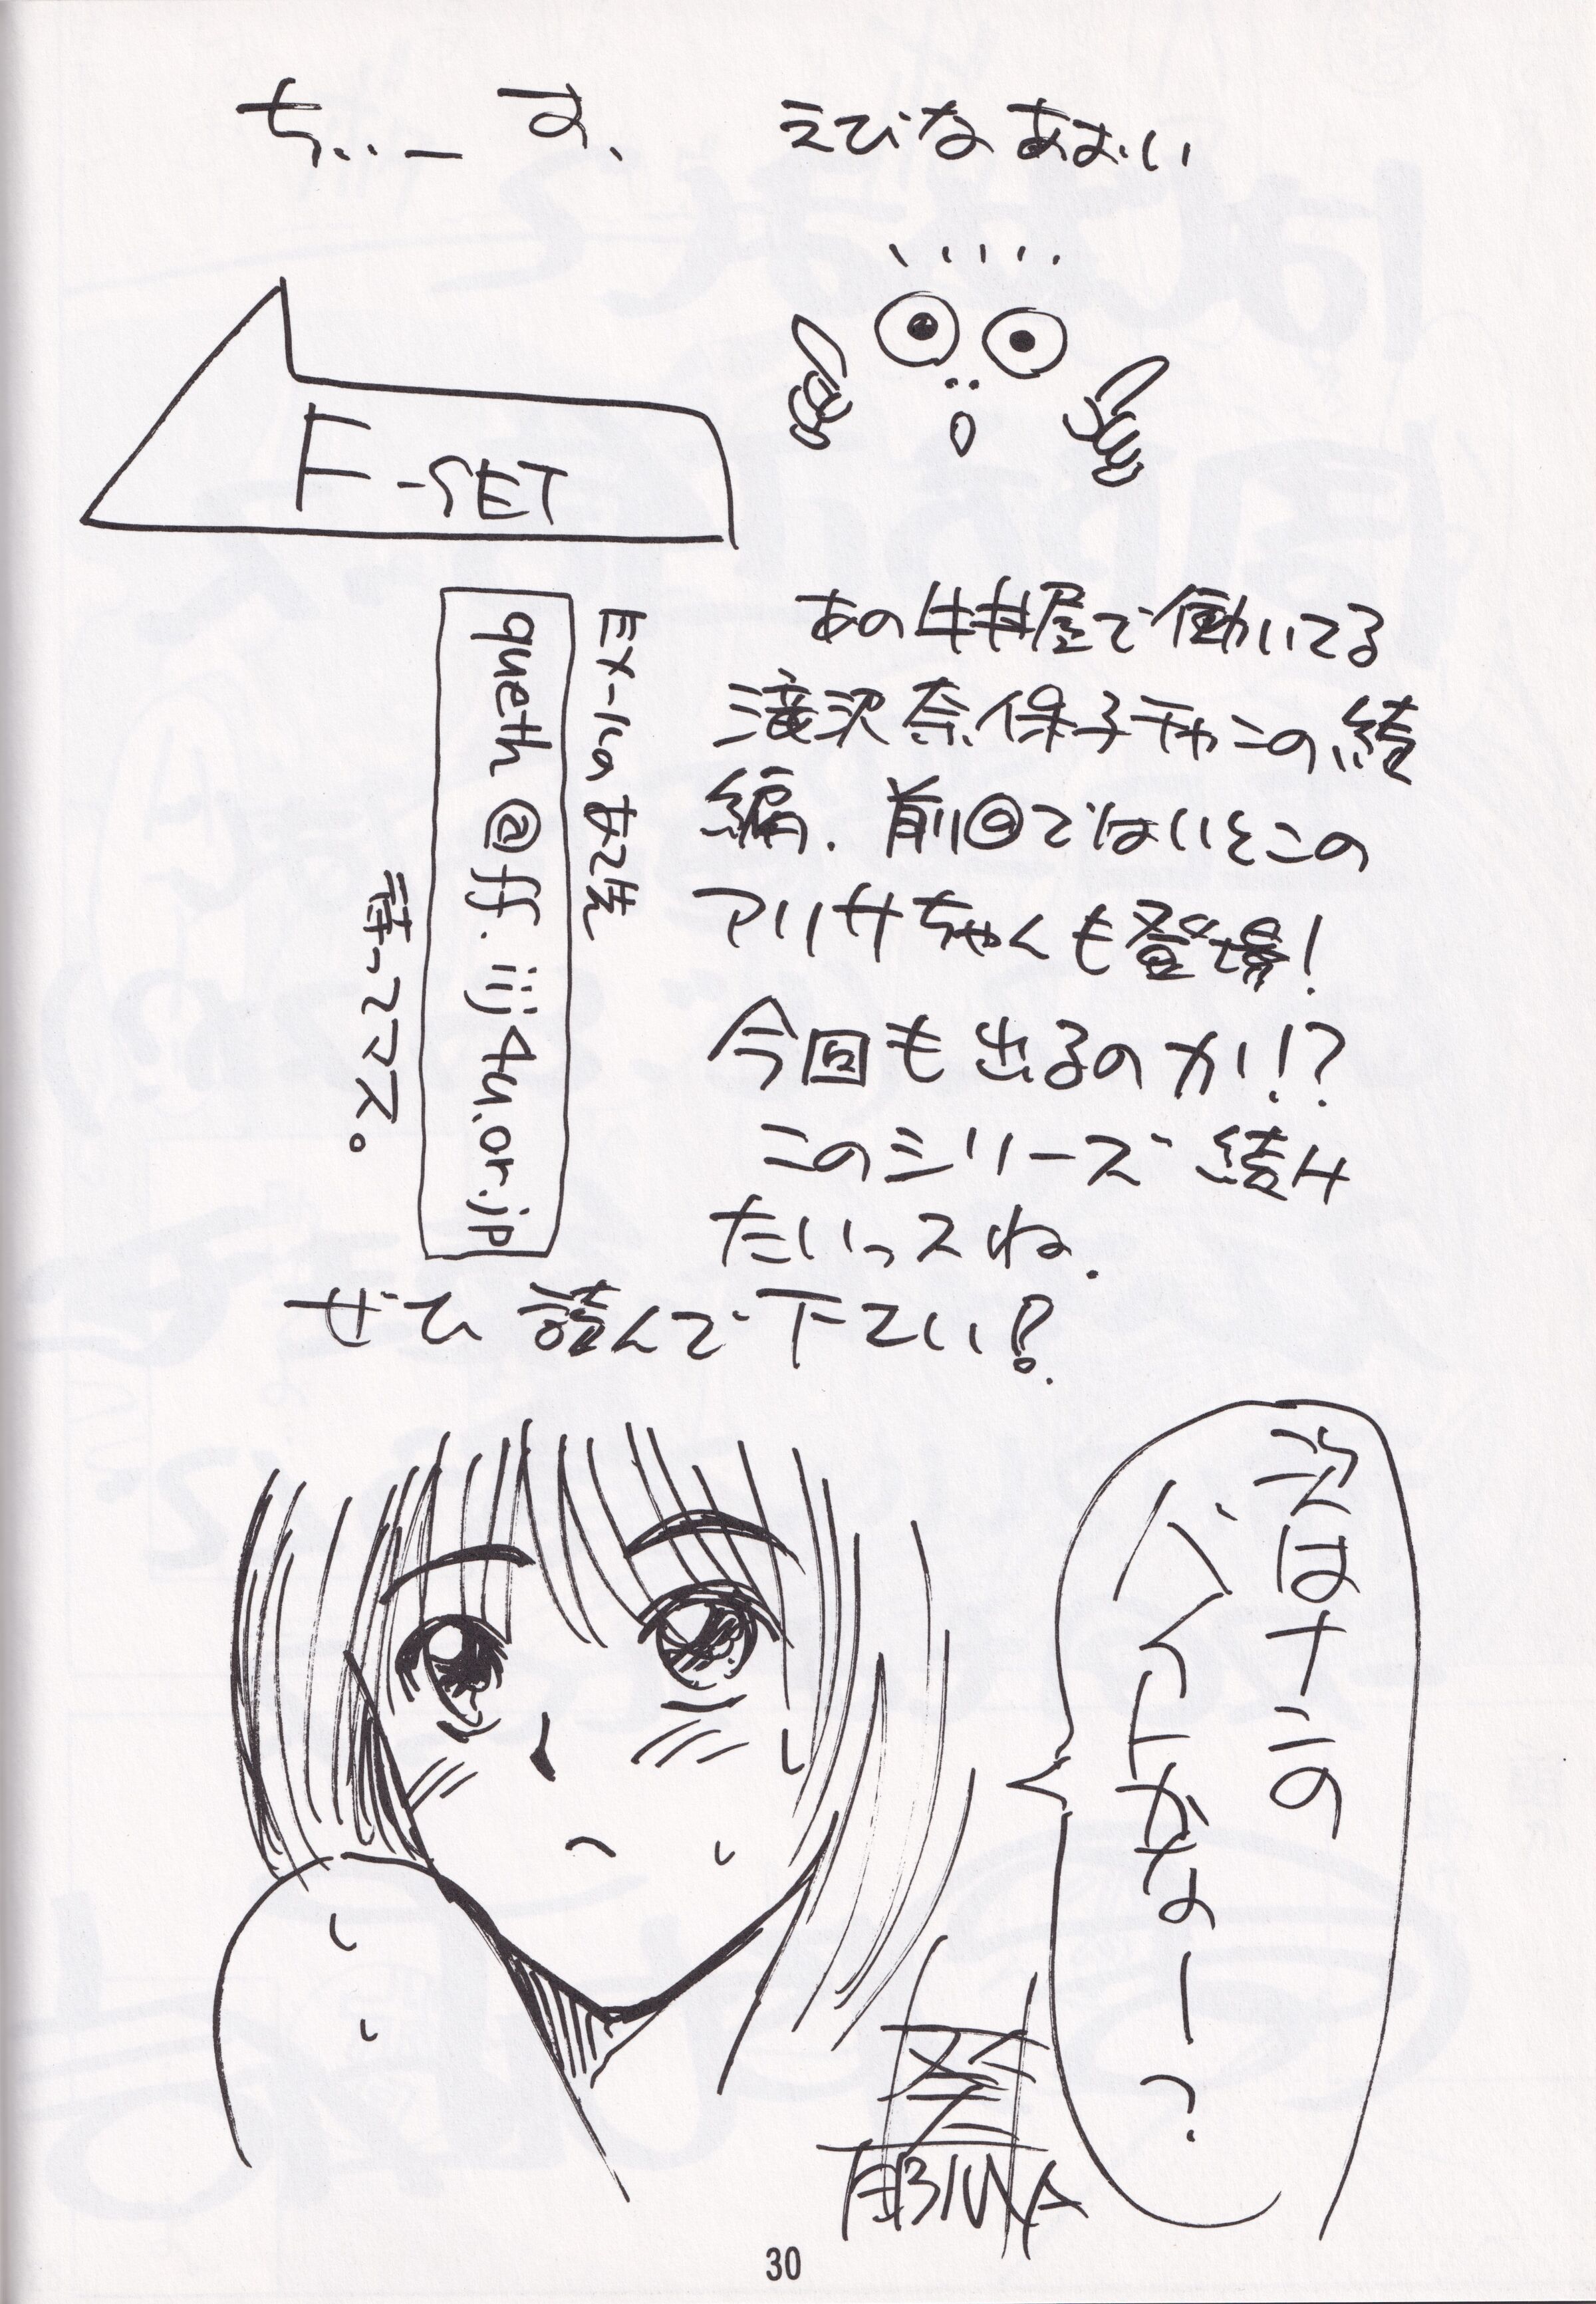 ちぃーす、 えびなあおい
あの牛丼屋で働いてる
滝沢奈保子チャンの続
編. 前回ではいとこの
アリサちゃんも登場!
今回も出るのか!!?
このシリーズ続け
たいっスね.
ぜひ読んで下さい!?
Eメールのあて先
queth@ff.iij4u.or.jp
待ってマス。
次はナニの
バイトかなー?
葵
EBINA
30